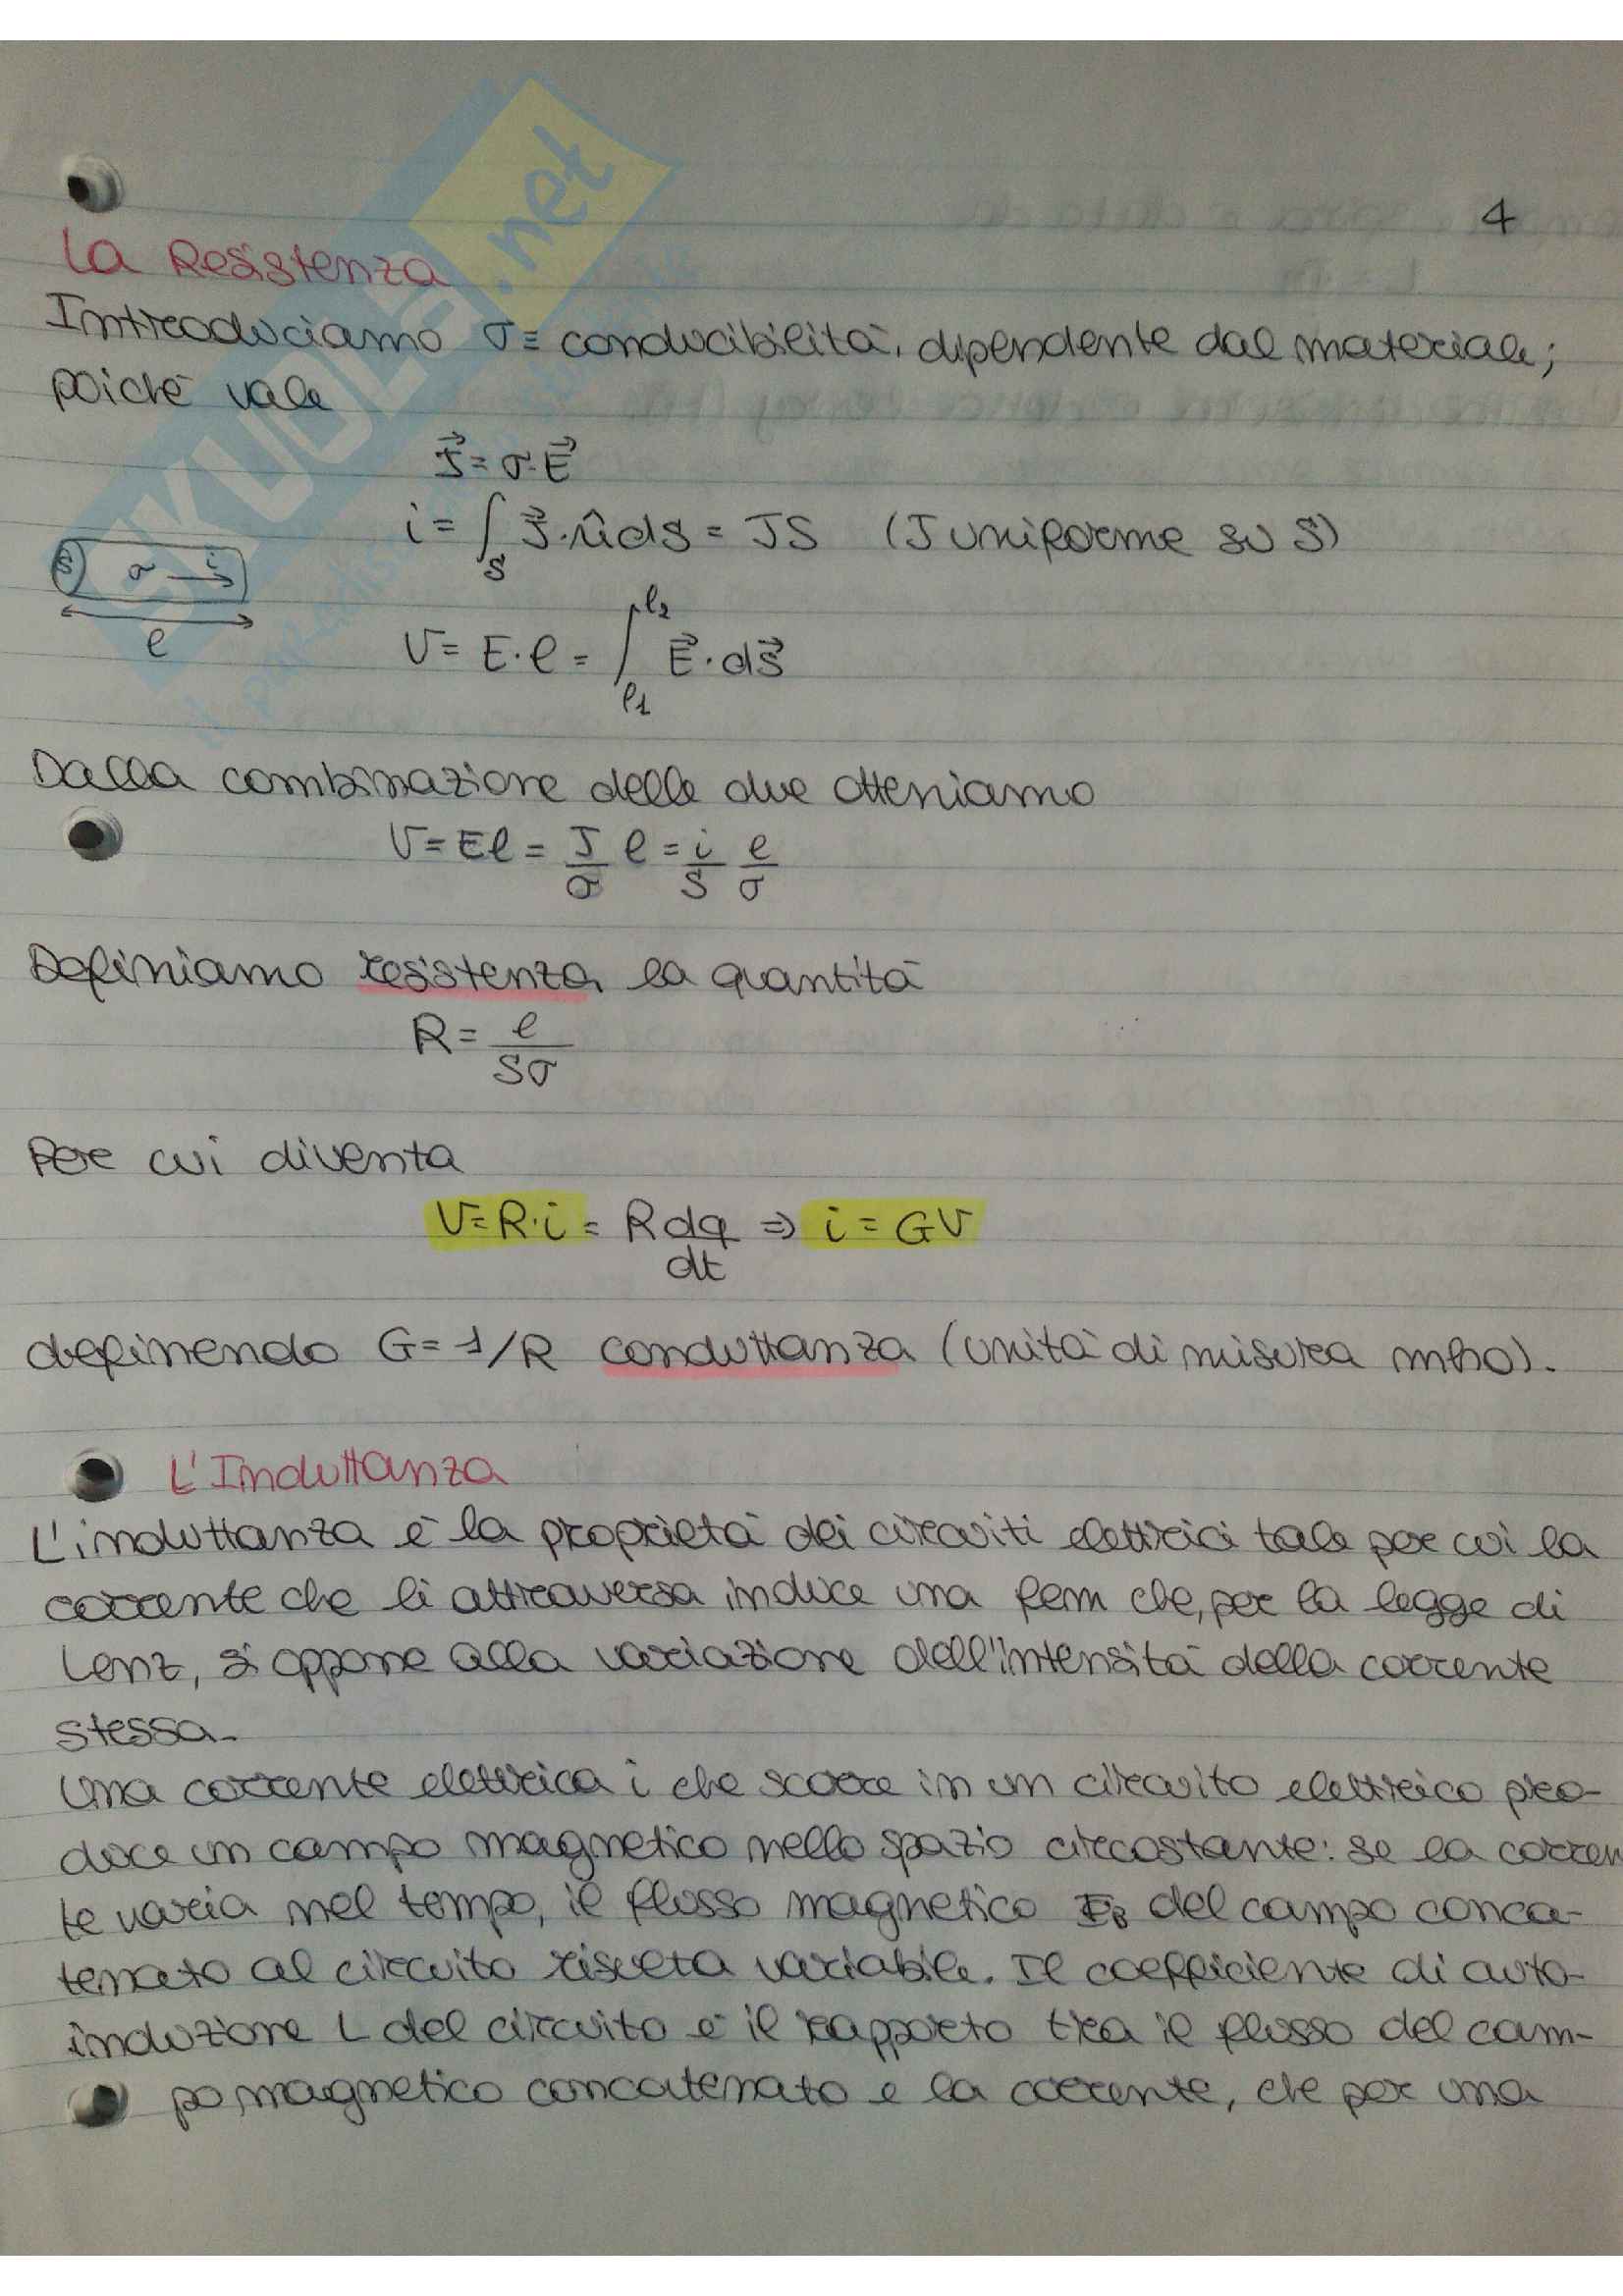 4
La Resistenza
Introduciamo σ≡ conducibilità, dipendente dal materiale;
poichè vale
J⃗ = σ·E⃗
i = ∫_S J⃗·û ds = JS (J uniforme su S)
S σ i
l
V = E·l = ∫_{l1}^{l2} E⃗·ds⃗
Dalla combinazione delle due otteniamo
V = El = J/σ l = i/S l/σ
Definiamo resistenza la quantità
R = l/Sσ
Per cui diventa
V=R·i = R dq/dt ⇒ i = GV
definendo G=1/R conduttanza (unità di misura mho).
L'Induttanza
L'induttanza è la proprietà dei circuiti elettrici tale per cui la
corrente che li attraversa induce una fem che, per la legge di
Lenz, si oppone alla variazione dell'intensità della corrente
stessa.
Una corrente elettrica i che scorre in un circuito elettrico pro-
duce un campo magnetico nello spazio circostante: se la corren
te varia nel tempo, il flusso magnetico Φ_B del campo conca-
tenato al circuito risulta variabile. Il coefficiente di auto-
induzione L del circuito è il rapporto tra il flusso del cam-
po magnetico concatenato e la corrente, che per una
SKUOLA.net